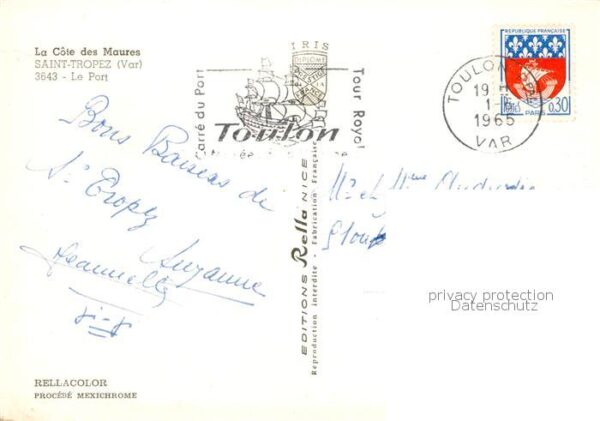 La Côte des Maures
SAINT-TROPEZ (Var)
3643 - Le Port
IRIS
Carré du Port
Tour Royale
Toulon
REPUBLIQUE FRANÇAISE
0,30
PARIS
TOULON
19
1965
VAR
Bons Baisers de
St Tropez
Suzanne
Jeannette
EDITIONS Rella NICE
Reproduction interdite - Fabrication Française
Mr et Mme
privacy protection
Datenschutz
RELLACOLOR
PROCÉDÉ MEXICHROME